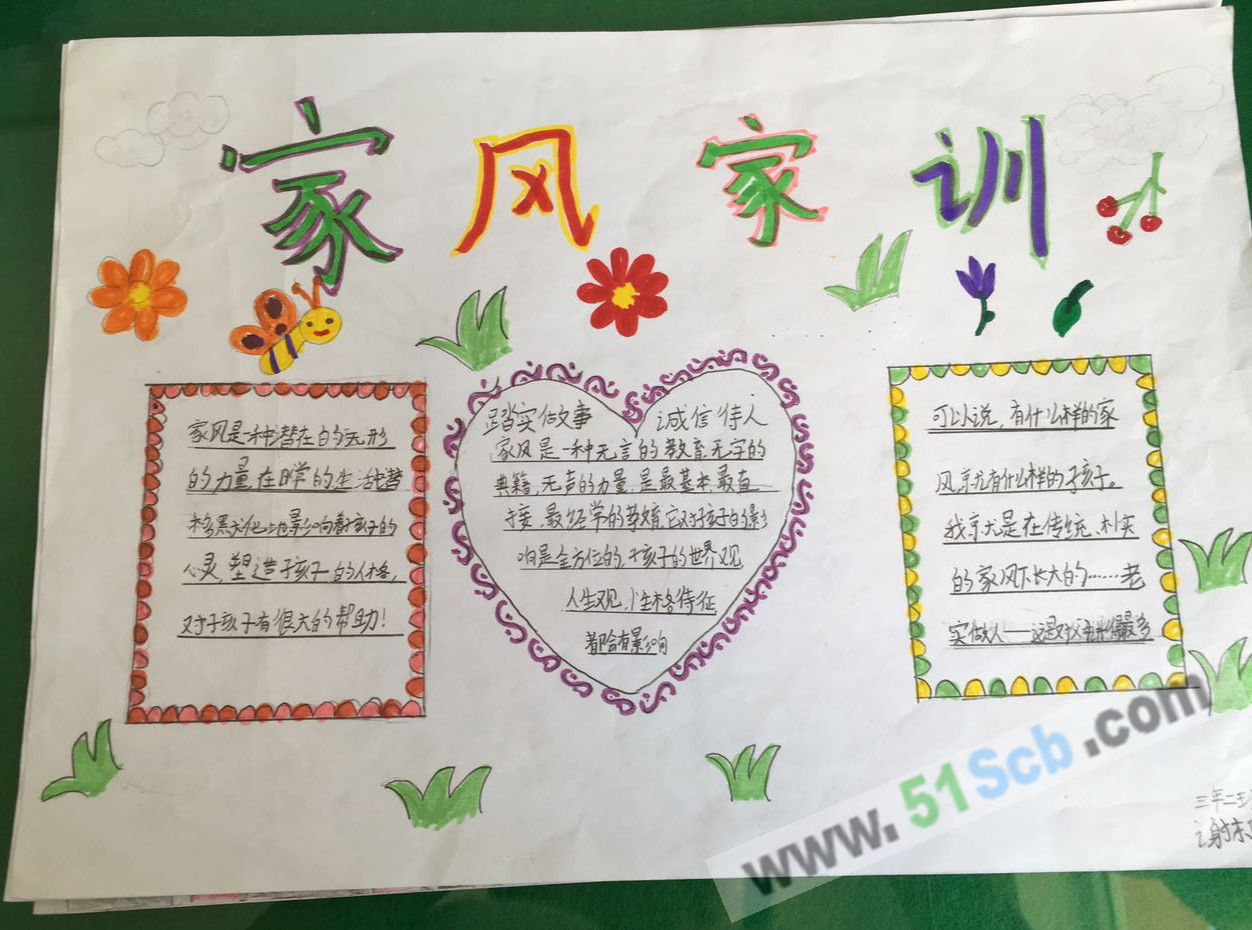 家风家训
家风是一种潜在的无形
的力量,在日常的生活中潜
移默化地影响着孩子的
心灵,塑造孩子的人格,
对于孩子有很大的帮助!
踏实做事 诚信待人
家风是一种无言的教育,无字的
典籍,无声的力量,是最基本,最直
接,最经常的教育,它对孩子的影
响是全方位的,孩子的世界观
人生观,性格特征
都会有影响
可以说,有什么样的家
风,就有什么样的孩子。
我就是在传统、朴实
的家风下长大的……老
实做人——这
最多
三年二班
谢
www.51Scb.com